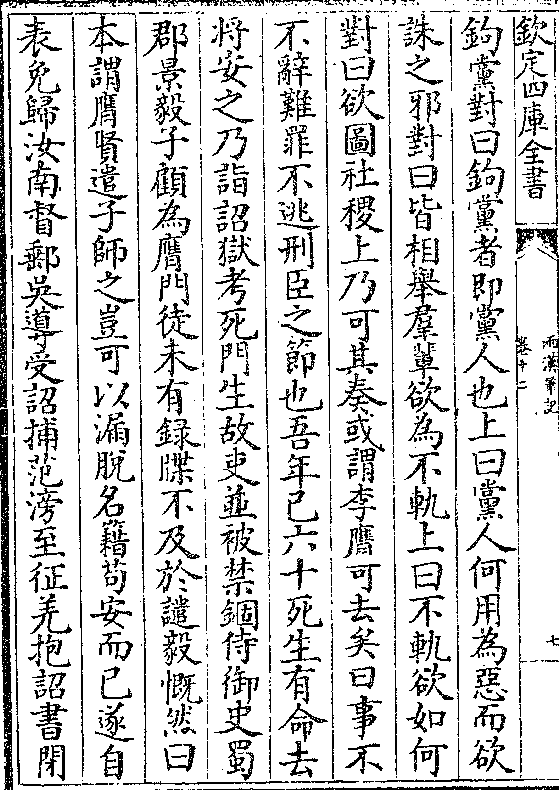 欽定四庫全書
兩漢筆記
卷十二
七
鉤黨對曰鉤黨者即黨人也上曰黨人何用為惡而欲
誅之邪對曰皆相舉羣輩欲為不軌上曰不軌欲如何
對曰欲圖社稷上乃可其奏或謂李膺可去矣曰事不
不辭難罪不逃刑臣之節也吾年已六十死生有命去
將安之乃詣詔獄考死門生故吏並被禁錮侍御史蜀
郡景毅子顧為膺門徒未有録牒不及於譴毅慨然曰
本謂膺賢遣子師之豈可以漏脫名籍苟安而已遂自
表免歸汝南督郵吳導受詔捕范滂至征羌抱詔書閉